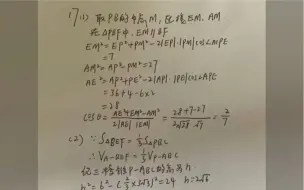 17(1) 取PB的中点M,连接EM、AM
在△PBF中,EM∥BF
EM²=EP²+PM²-2|EP|·|PM|cos∠MPE
=7
AM²=AP²-PM²=27
AE²=AP²+PE²-2|AP|·|PE|cos∠APE
=36+4-6×2
=28
cosθ=\frac{AE²+EM²-AM²}{2|AE||EM|}=\frac{28+7-27}{2√28·√7}=\frac{2}{7}
(2) ∵S△BEF=\frac{1}{3}S△PBC
∴V_{A-BEF}=\frac{1}{3}V_{P-ABC}
记三棱锥P-ABC的高为h
h²=6²-(\frac{2}{3}×3√3)²=24 h=2√6